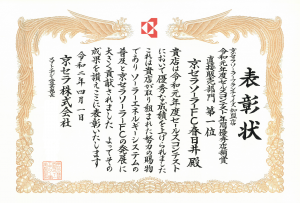 表彰状
京セラソーラーフランチャイズ加盟店
令和元年度セールスコンテスト年間優秀店舗賞
直接販売部門 第一位
京セラソーラーFC春日井殿
貴店は令和元年度セールスコンテスト
において優秀な成績を上げられました
これは貴店が取り組まれた努力の賜物
でありソーラーエネルギーシステムの
普及と京セラソーラーFCの発展に
大きく貢献されました よってその
成果を讃えここに表彰いたします
令和二年四月一日
京セラ株式会社